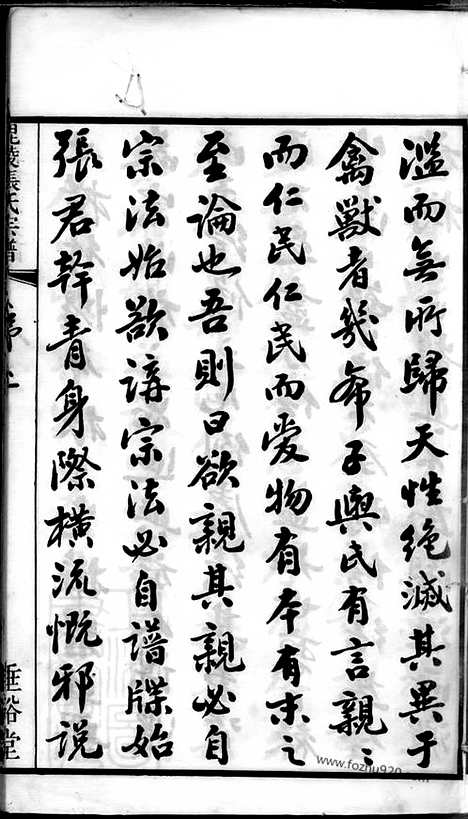 濫而無所歸天性絶滅其異于
禽獸者幾希子輿氏有言親〻
而仁民仁民而愛物有本有末之
至論也吾則曰欲親其親必自
宗法始欲講宗法必自譜牒始
張君幹青身際橫流慨邪說
毘陵張氏宗譜
序
垂裕堂
www.fozhu920.com